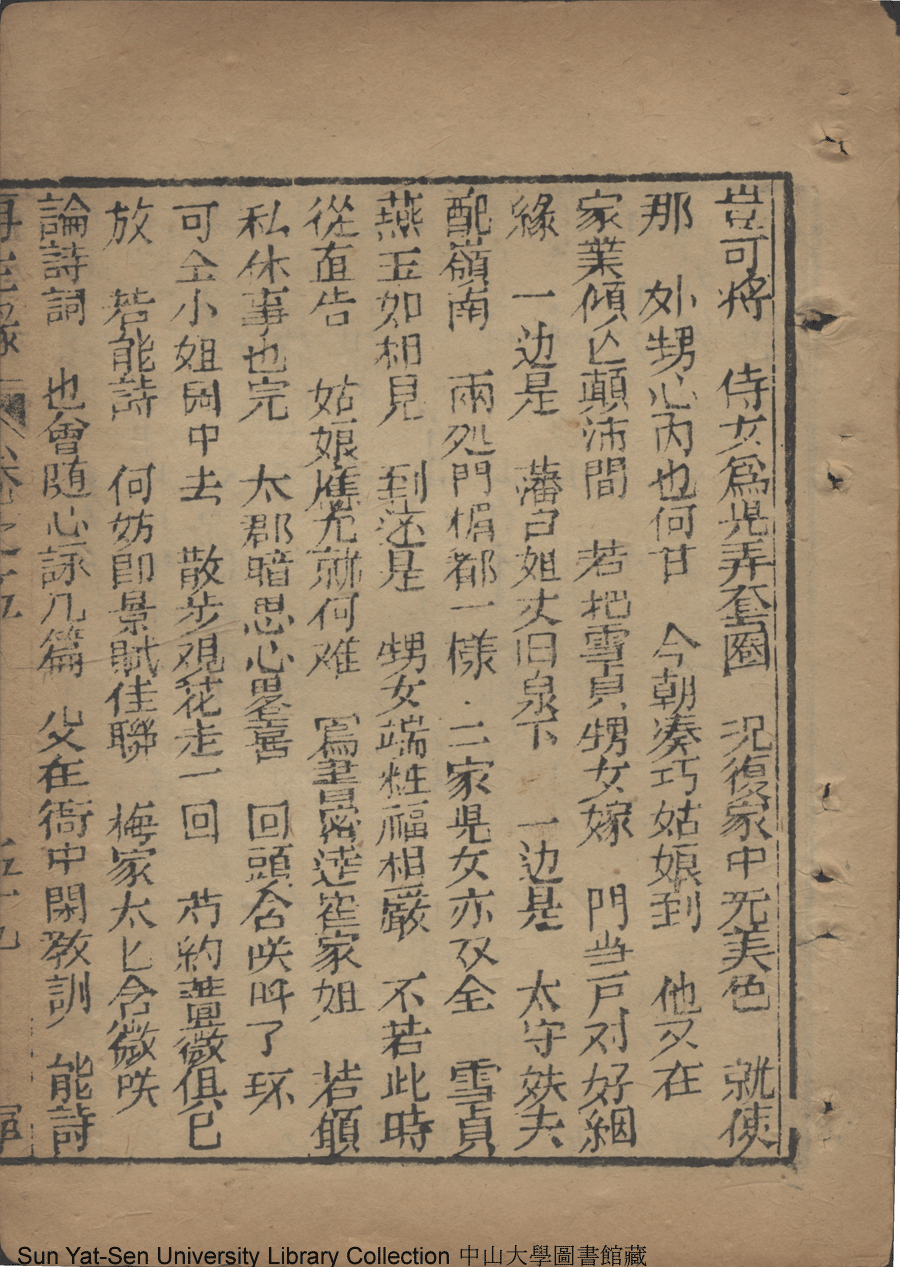 豈可將　侍女爲児弄套圈　况復家中无美色　就使
那　外甥心内也何甘　今朝凑巧姑娘到　他又在
家業傾亡顛沛間　若把雪貞甥女嫁　門当户对好姻
緣　一边是　藩台姐丈旧泉下　一边是　太守妖夫
配嶺南　兩処門楣都一様．二家児女亦双全　雪貞
燕玉如相見　到底是　甥女端粧福相嚴　不若此時
從直告　姑娘應允就何难　寫書宻逹崔家姐　若頋
私休事也完　太郡暗思心墨喜　回頭含咲呌了环
可仝小姐园中去　散步观花走一回　芍約薔薇俱已
放　若能詩　何妨即景賦佳聯　梅家太匕含微咲
論詩詞　也會随心詠几篇　父在衙中閑教訓　能詩
再生縁　卷之十五　五十九
Sun Yat-Sen University Library Collection 中山大學圖書館藏